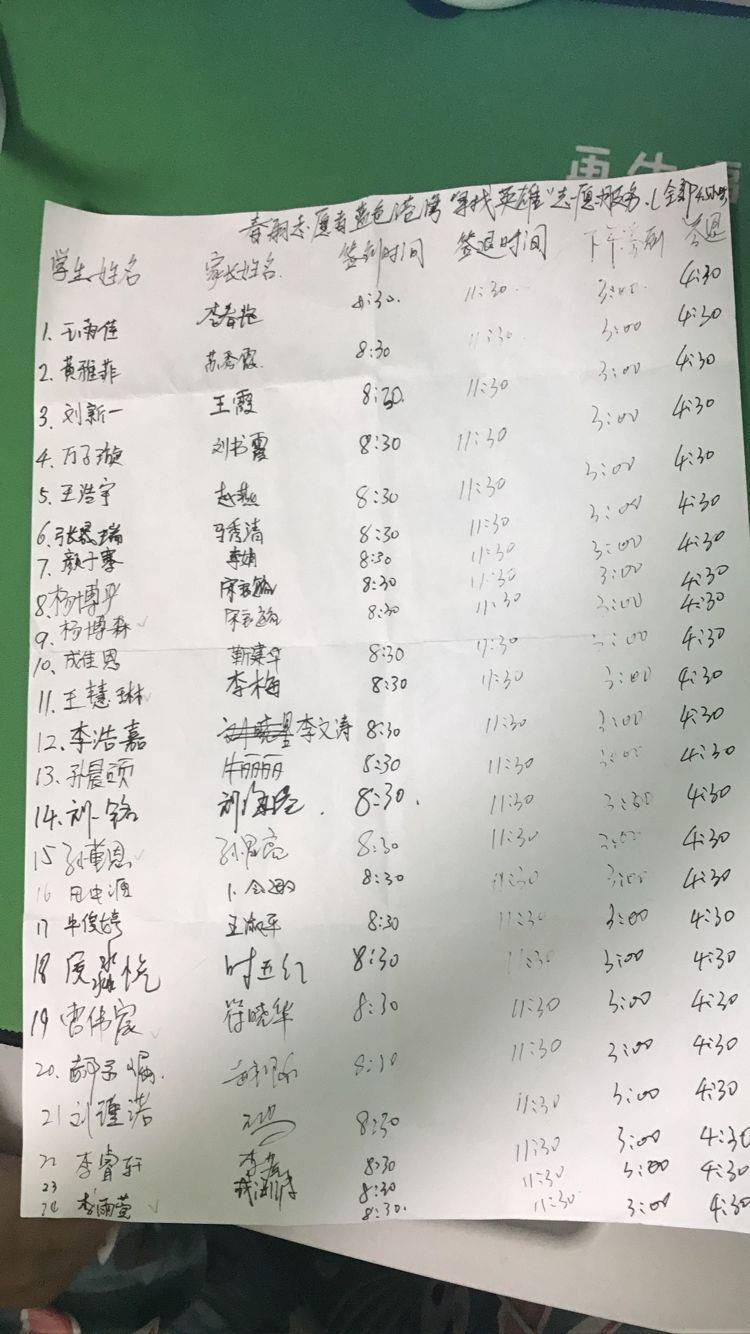 再生
志愿者蓝色港湾"寻找英雄"志愿服务(全部4.5小时
学生姓名 家长姓名 签到时间 签退时间 下午签到 签退
1. 王雨佳 李春艳 8:30. 11:30 3:00 4:30
2. 黄雅菲 苏秀霞 8:30 11:30 3:00 4:30
3. 刘新一 王霞 8:30 11:30 3:00 4:30
4. 万子璇 刘书霞 8:30 11:30 3:00 4:30
5. 王浩宇 赵燕 8:30 11:30 3:00 4:30
6. 瑞 马秀清 8:30 11:30 3:00 4:30
7. 颜子骞 李娟 8:30 11:30 3:00 4:30
8. 杨博 8:30 11:30 3:00 4:30
9. 杨博森 8:30 11:30 3:00 4:30
10. 成佳恩 靳建华 8:30 11:30 3:00 4:30
11. 王慧琳 李梅 8:30 11:30 3:00 4:30
12. 李浩嘉 李文涛 8:30 11:30 3:00 4:30
13. 牛丽丽 8:30 11:30 3:00 4:30
14. 刘一铭 刘 8:30. 11:30 3:00 4:30
15 孙 恩 孙 8:30 11:30 3:00 4:30
16 8:30 11:30 3:00 4:30
17 牛俊婷 王淑平 8:30 11:30 3:00 4:30
18 时五红 8:30 11:30 3:00 4:30
19 曹伟宸 符晓华 8:30 11:30 3:00 4:30
20. 郝子 8:30 11:30 3:00 4:30
21 刘瑾诺 8:30 11:30 3:00 4:30
22 李睿轩 李 8:30 11:30 3:00 4:30
23 8:30 11:30 3:00 4:30
24 李雨萱 8:30. 11:30 3:00 4:30